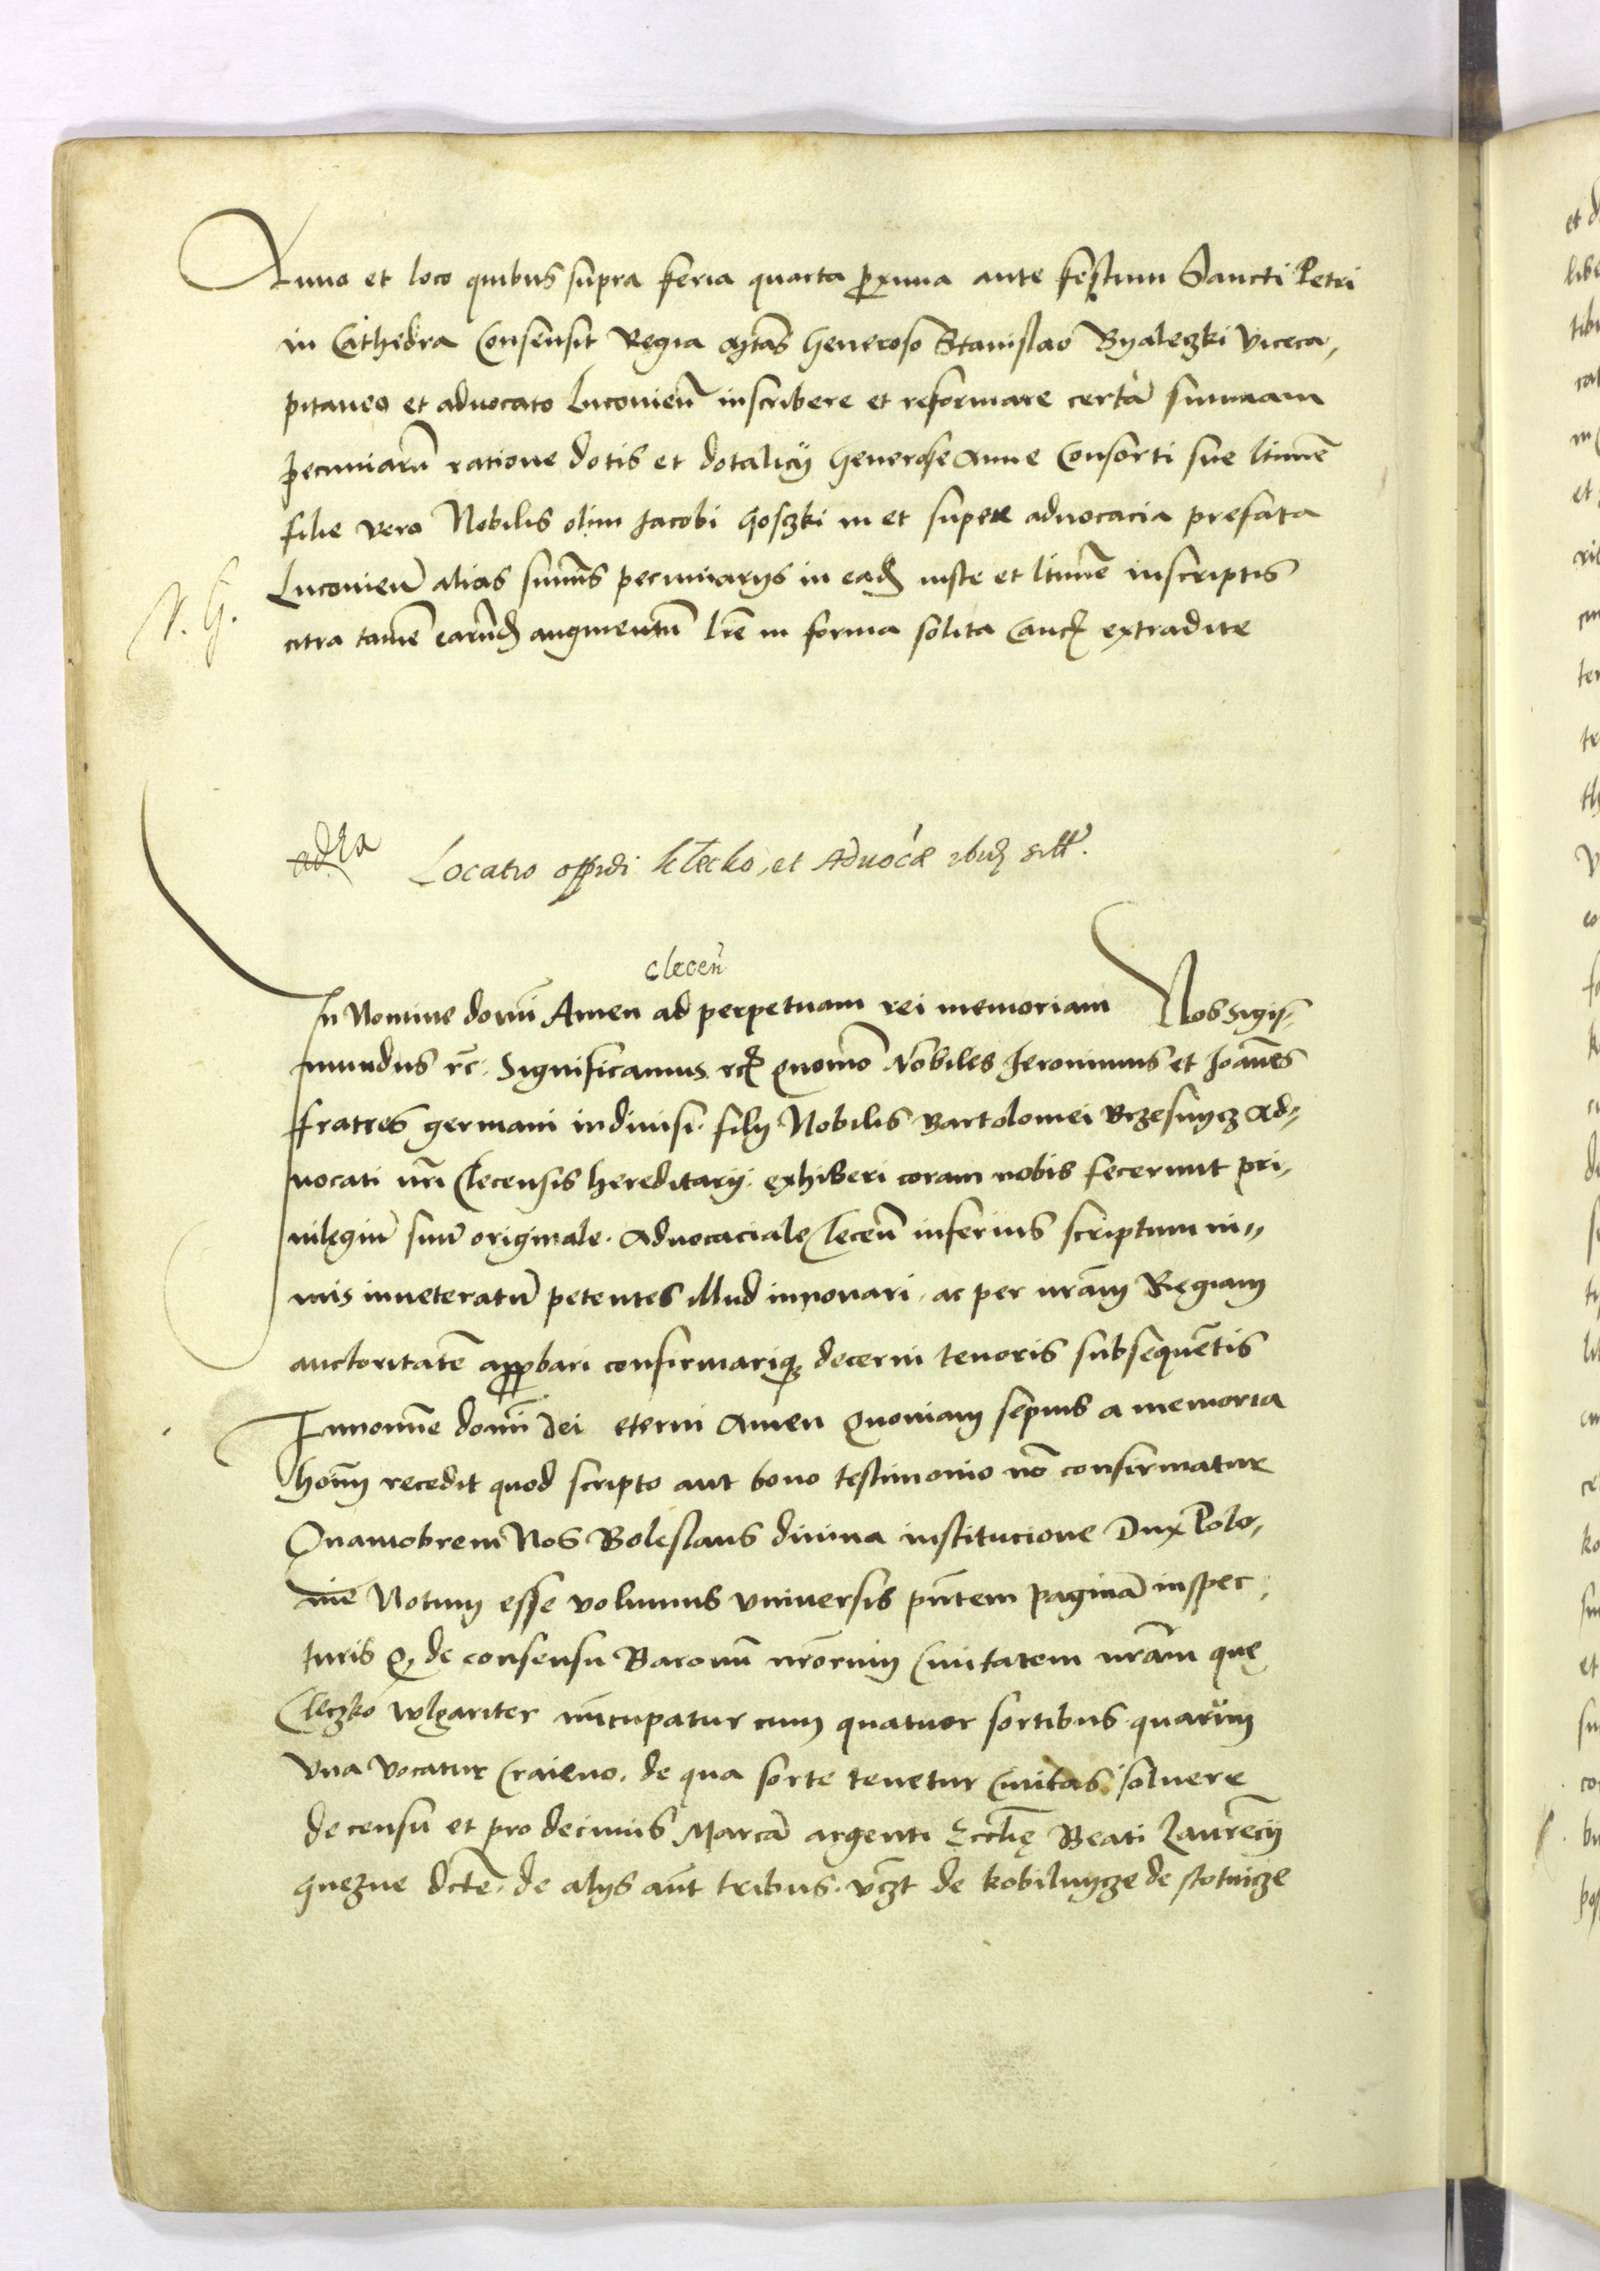 Anno et loco quibus supra feria quarta proxima ante festum Sancti Petri
in Cathedra Consensit Regia Mtas Generoso Stanislao Byaleczki viceca,
pitaneo et advocato Luconien̄ inscribere et reformare certā summam
pecuniarū ratione dotis et dotalicij Generose Anne Consorti sue ltimē
filie vero Nobilis olim Jacobi Gosczki in et super advocacia prefata
Luconien̄ alias summis pecuniarijs in eadē iuste et ltimē inscriptis
N. G.
citra tamē earundē augmentum lrē in forma solita Canc extradite
Locatio oppidi klecko, et Advocae ibidē
clecen̄
In Nomine domini Amen ad perpetuam rei memoriam Nos Sigis-
mundus rc̄. Significamus rc̄ quomo Nobiles Jeronimus et Joānes
fratres germani indivisi. filij Nobilis Bartolomei Brzesnycz Ad-
vocati nrī Clecensis hereditarij. exhiberi coram nobis fecerunt pri,
vilegiū suū originale. Advocaciale Clecen̄ inferius scriptum ni-
mis inveteratū petentes illud innovari. ac per nrām Regiam
auctoritatē approbari confirmariq3 decerni tenoris subsequētis
In nomine domini dei eterni Amen Quoniam sepius a memoria
hominū recedit quod scripto aut bono testimonio nō confirmatur
Quamobrem Nos Boleslaus divina institucione Dux Polo,
nie Notum esse volumus universis pntem paginā inspec,
turis q, de consensu Baronū nrōrum Civitatem nrām que
Cleczko wlgariter nūcupatur cum quatuor sortibus. quarum
Una vocatur Craievo. de qua sorte tenetur Civitas. solvere
de censu et pro decimis Marcā argenti Ecclię Beati Laurēcij
Gnezne dcte. de alijs aūt tribus. vcz de kobilnycze de slotnicze